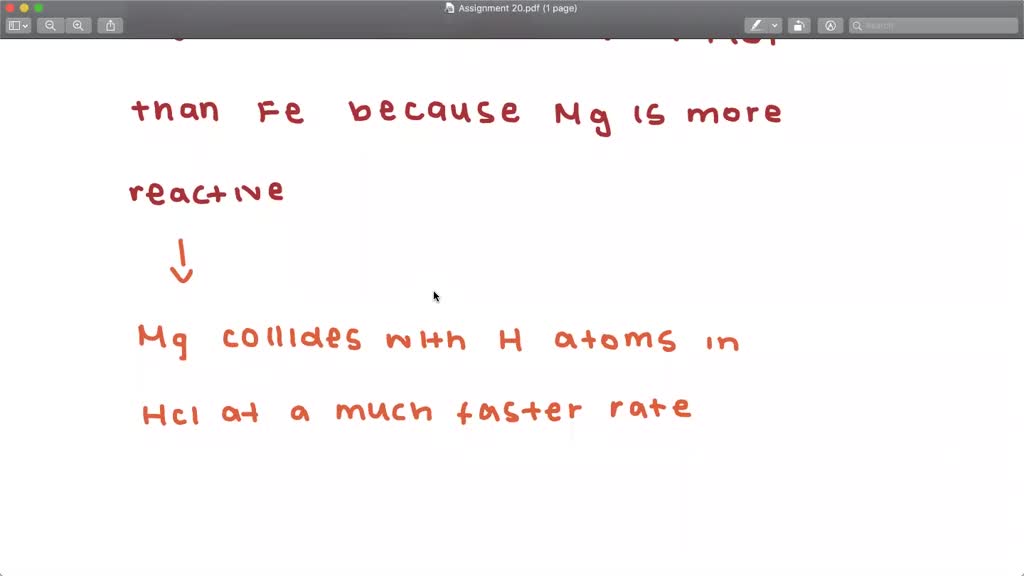 Assignment 20.pdf (1 page)
Search
than Fe because Mg is more
reactive
Mg collides with H atoms in
HCl at a much faster rate